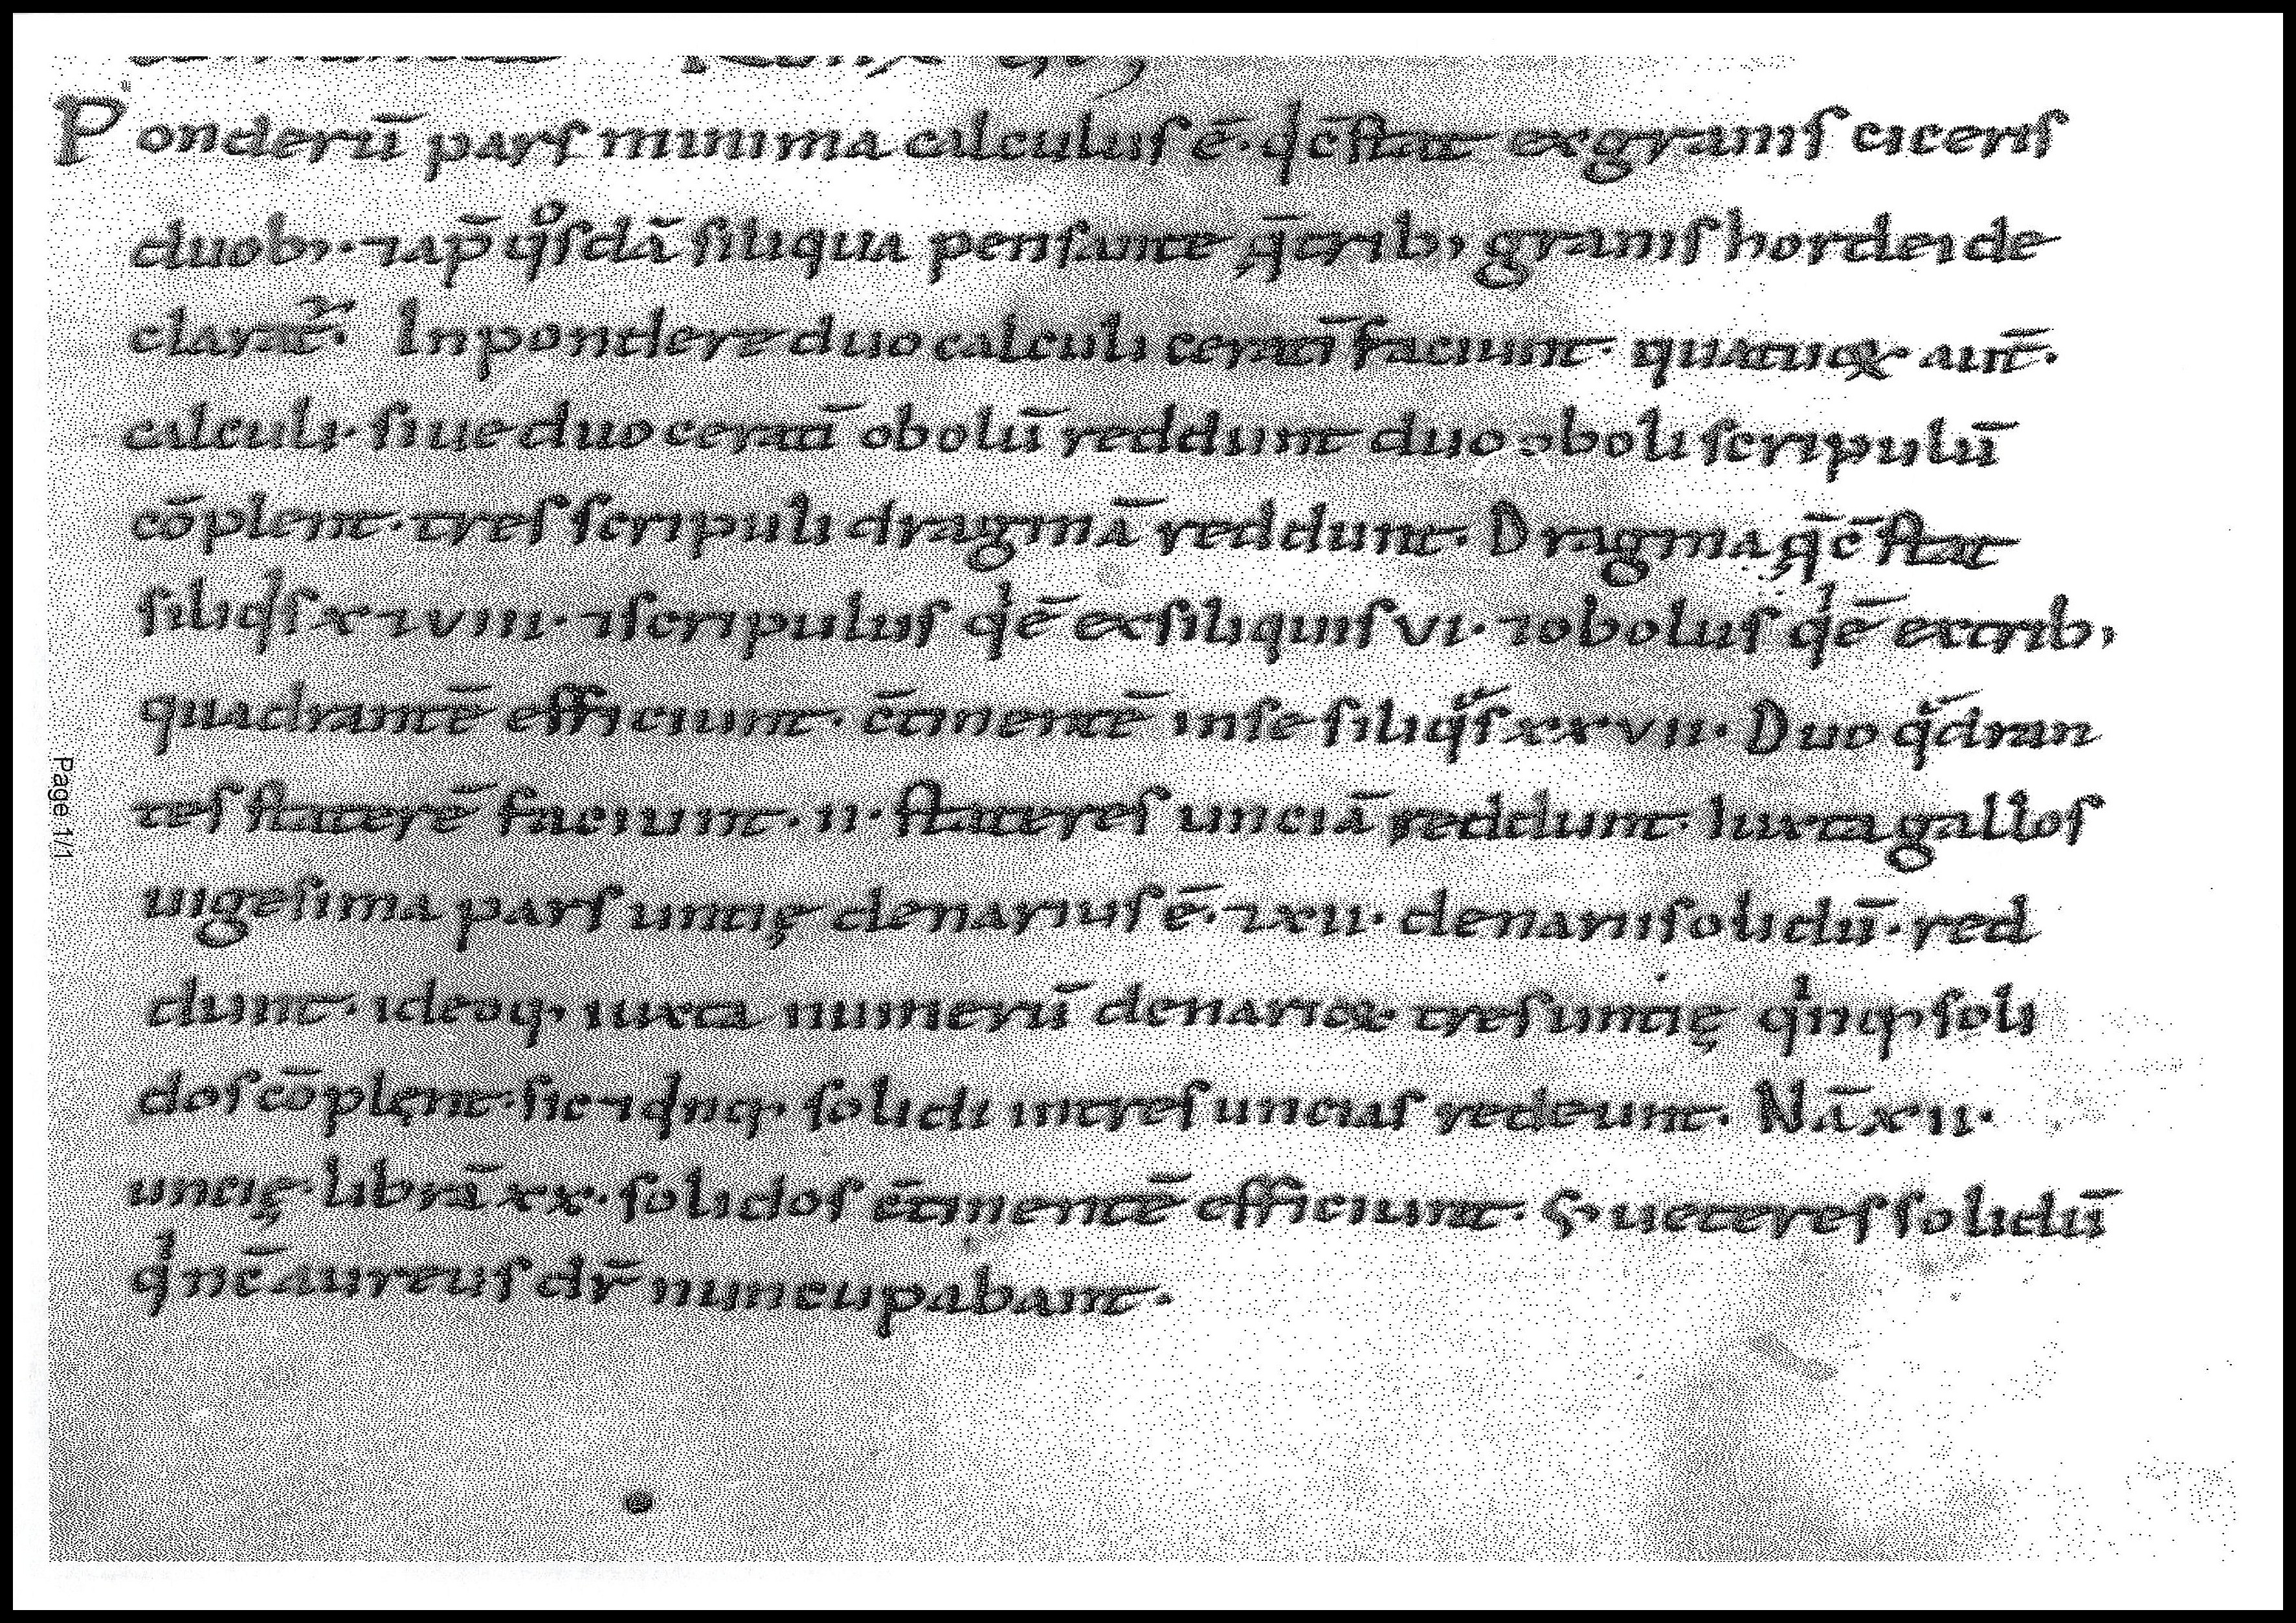 Ponderū parſ minima calculuſ ē. qͥ c̄ſtat ex graniſ ciceriſ
duob; ⁊ ap̄ qͦſdā ſiliqua penſante q̄ trib; graniſ hordei de
clarat᷑. In pondere duo calculi ceratī faciunt. quatuoꝝ aut̄.
calculi. ſiue duo ceratī obolū reddunt duo oboli ſcripulū
cōplent. treſ ſcripuli dragmā reddunt. Dragma q̄ c̄ſtat
ſiliqͥſ x ⁊ viii. ⁊ ſcripuluſ qͥ ē ex ſiliquiſ vi. ⁊ oboluſ qͥ ē ex trib;
quadrantē efficiunt. c̄tinentē in ſe ſiliqᷓſ xxvii. Duo qᷓdran
teſ ſtaterē faciunt. ii. ſtatereſ unciā reddunt. Iuxta galloſ
uigeſima parſ untię denariuſ ē. ⁊ xii. denarii ſolidū. red
dunt. ideoq; iuxta numerū denarioꝝ treſ untię qͥnq; ſoli
doſ cōplent. ſic ⁊ qͥnq; ſolidi in treſ unciaſ redeunt. Nā xii.
uncię librā xx. ſolidoſ c̄tinentē efficiunt. S; uetereſ ſolidū
qͥ nc̄ aureuſ dr̄ nuncupabant.
Page 1/1